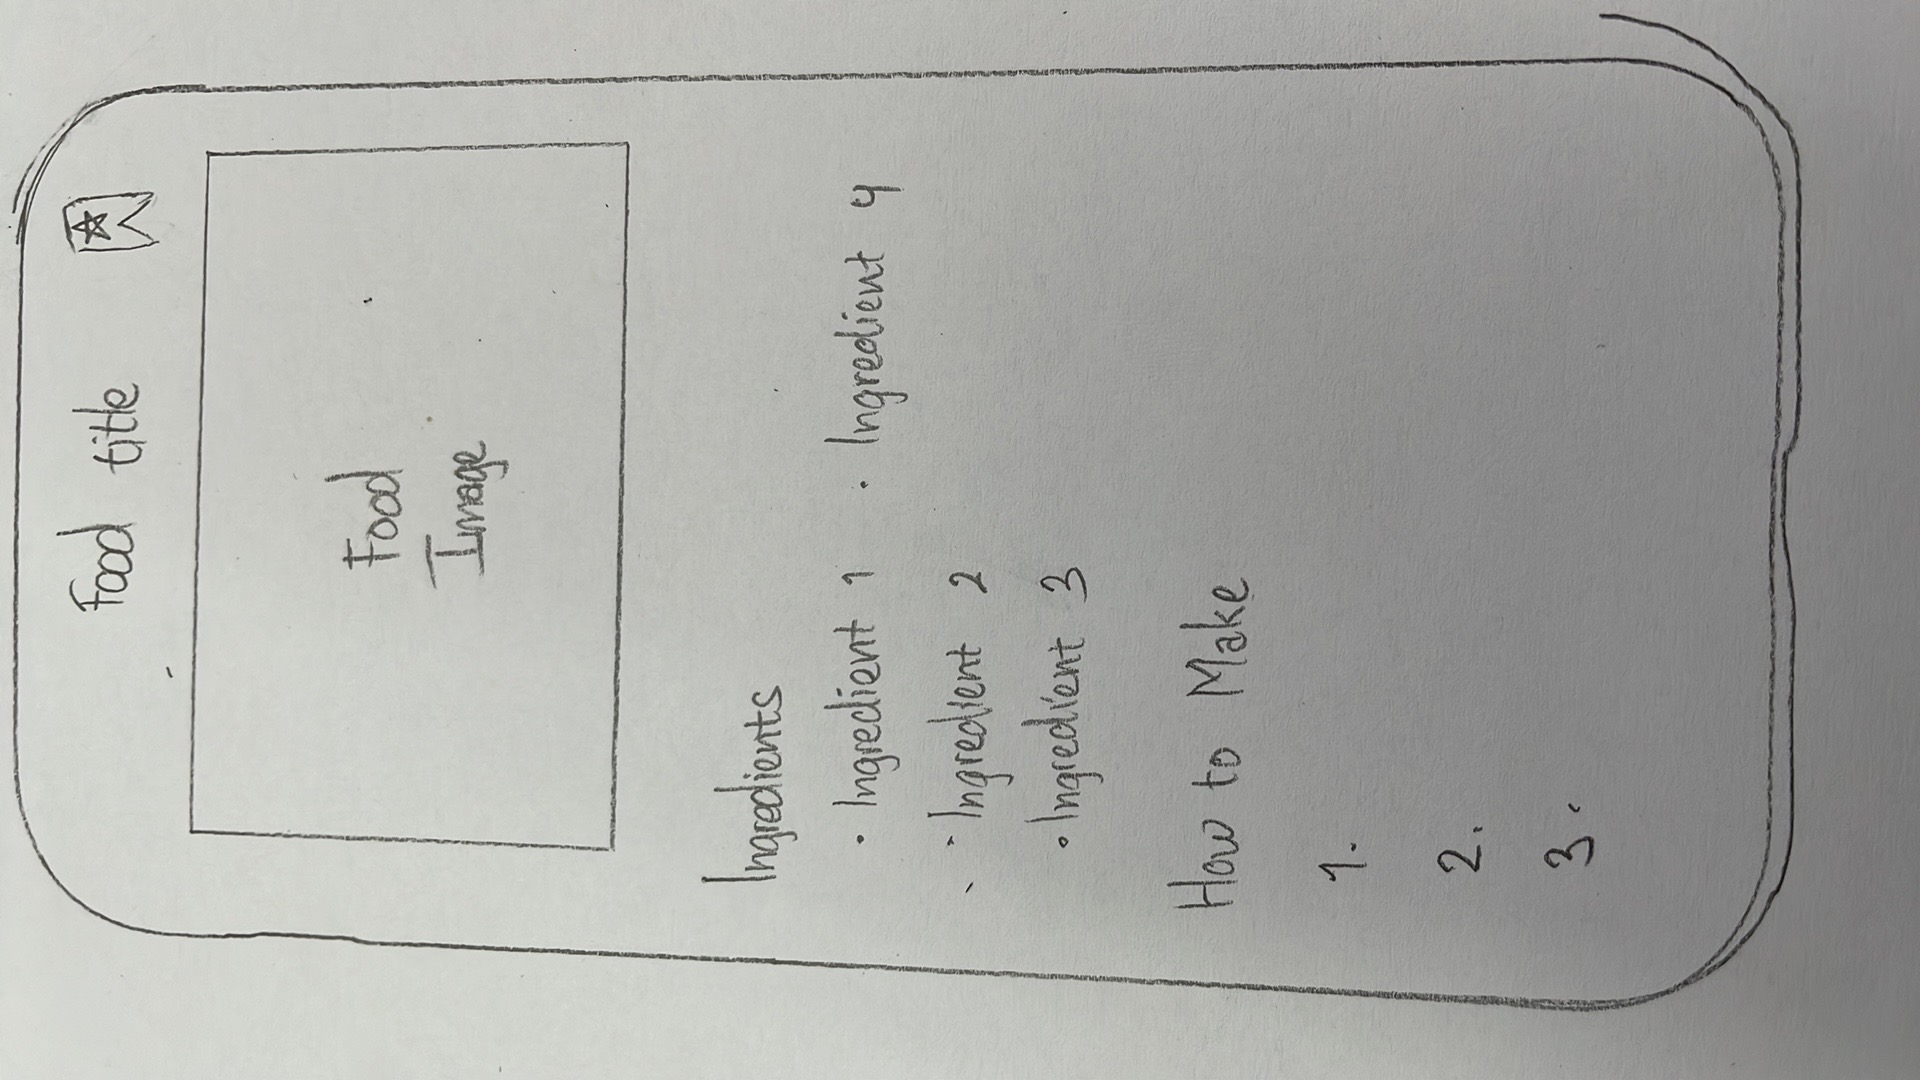 Food title
Food
Image
Ingredients
· Ingredient 1 · Ingredient 4
· Ingredient 2
· Ingredient 3
How to Make
1.
2.
3.